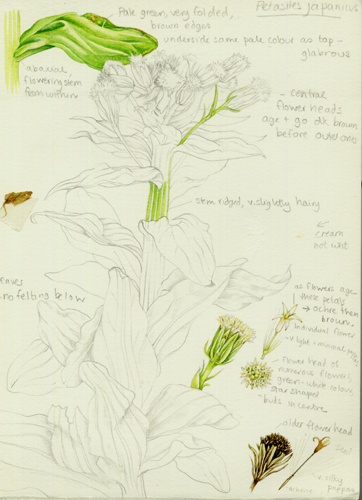 Petasites japanicus
Pale green, very folded,
brown edges
underside same pale colour as top -
glabrous
abaxial
flowering stem
from
- central
flower heads
age + go dk. brown
before outer ones
stem ridged, v. slightly hairy
cream
not
no felting below
as flowers age
these petals
→ ochre then
brown
individual flower
v. light
- flower head of
numerous flowers
green-white colour
star shaped
- buds in centre
older flower head
v. silky
pappus